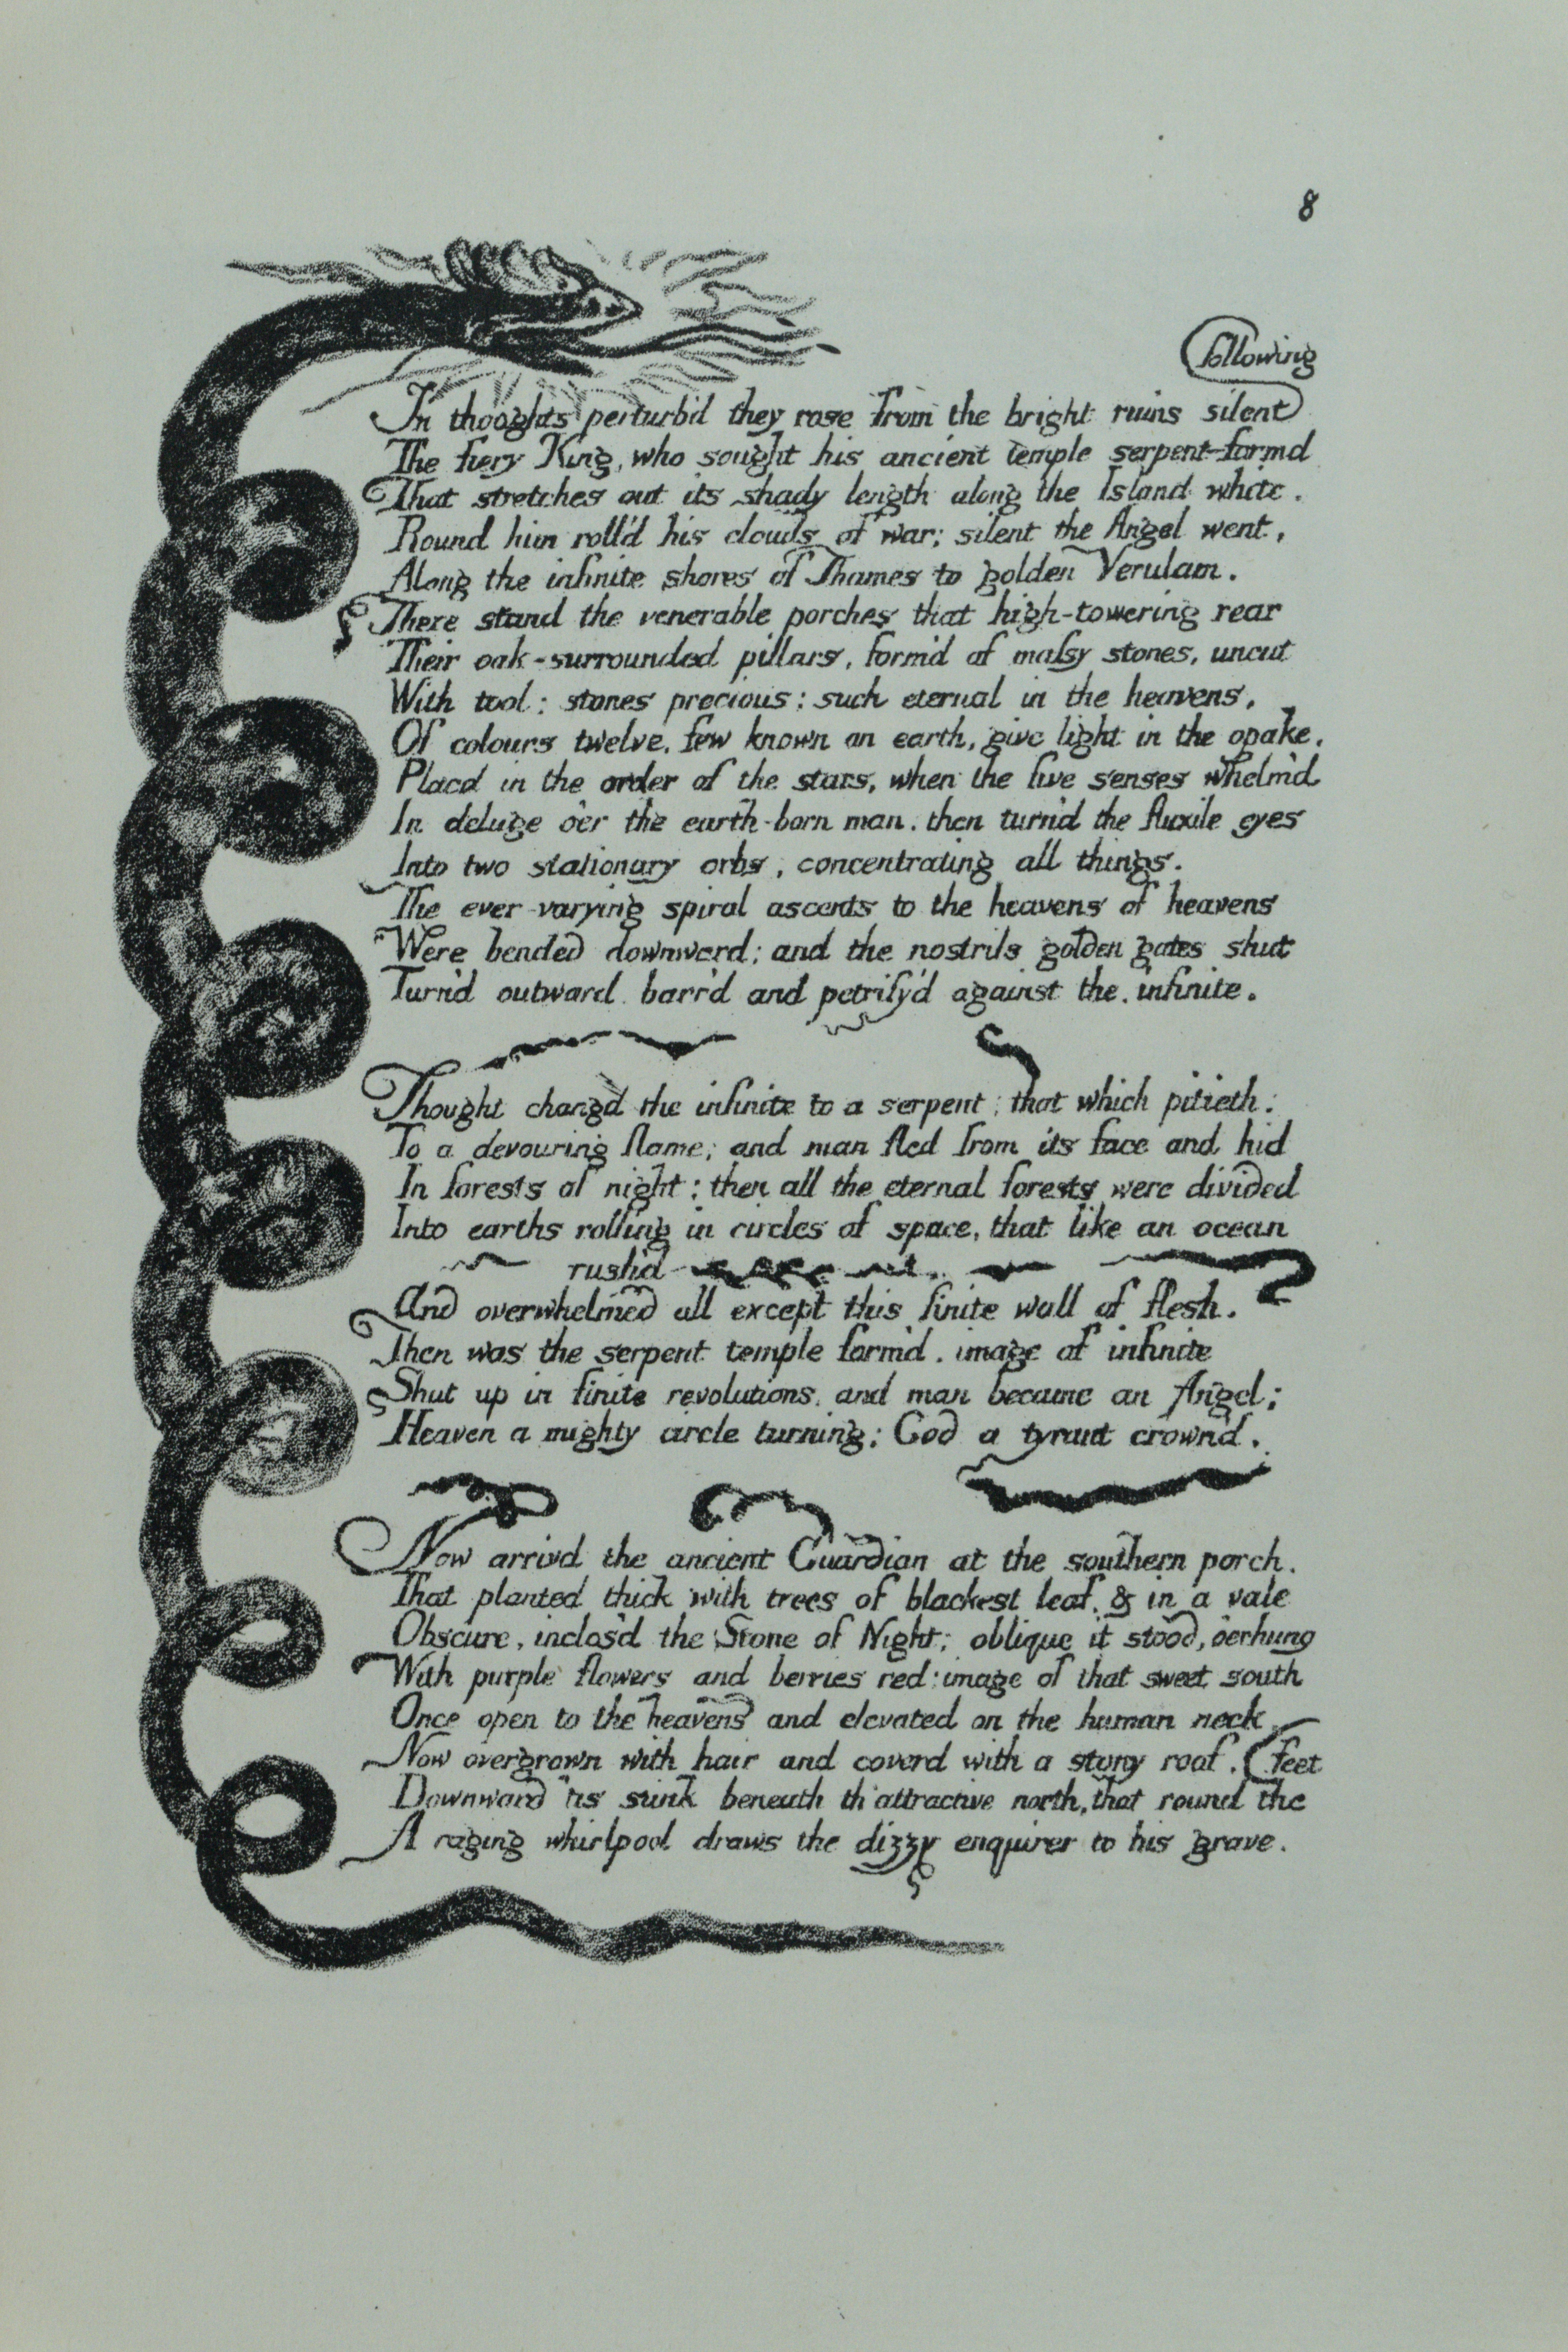 8
following
In thoughts perturb'd they rose from the bright ruins silent
The fiery King, who sought his ancient temple serpent-form'd
That stretches out its shady length along the Island white.
Round him roll'd his clouds of war; silent the Angel went,
Along the infinite shores of Thames to golden Verulam.
There stand the venerable porches that high-towering rear
Their oak-surrounded pillars, form'd of maſsy stones, uncut
With tool: stones precious: such eternal in the heavens,
Of colours twelve, few known on earth, give light in the opake,
Plac'd in the order of the stars, when the five senses whelm'd
In deluge o'er the earth-born man. then turn'd the fluxile eyes
Into two stationary orbs, concentrating all things.
The ever-varying spiral ascents to the heavens of heavens
Were bended downward; and the nostrils golden gates shut
Turn'd outward barr'd and petrify'd against the infinite.
Thought chang'd the infinite to a serpent; that which pitieth:
To a devouring flame; and man fled from its face and hid
In forests of night; then all the eternal forests were divided
Into earths rolling in circles of space, that like an ocean
rush'd
And overwhelmed all except this finite wall of flesh.
Then was the serpent temple form'd, image of infinite
Shut up in finite revolutions, and man became an Angel;
Heaven a mighty circle turning; God a tyrant crown'd.
Now arriv'd the ancient Guardian at the southern porch.
That planted thick with trees of blackest leaf, & in a vale
Obscure, inclos'd the Stone of Night; oblique it stood, o'erhung
With purple flowers and berries red: image of that sweet south
Once open to the heavens and elevated on the human neck
Now overgrown with hair and coverd with a stony roof.
feet
Downward 'tis sunk beneath th' attractive north, that round the
A raging whirlpool draws the dizzy enquirer to his grave.